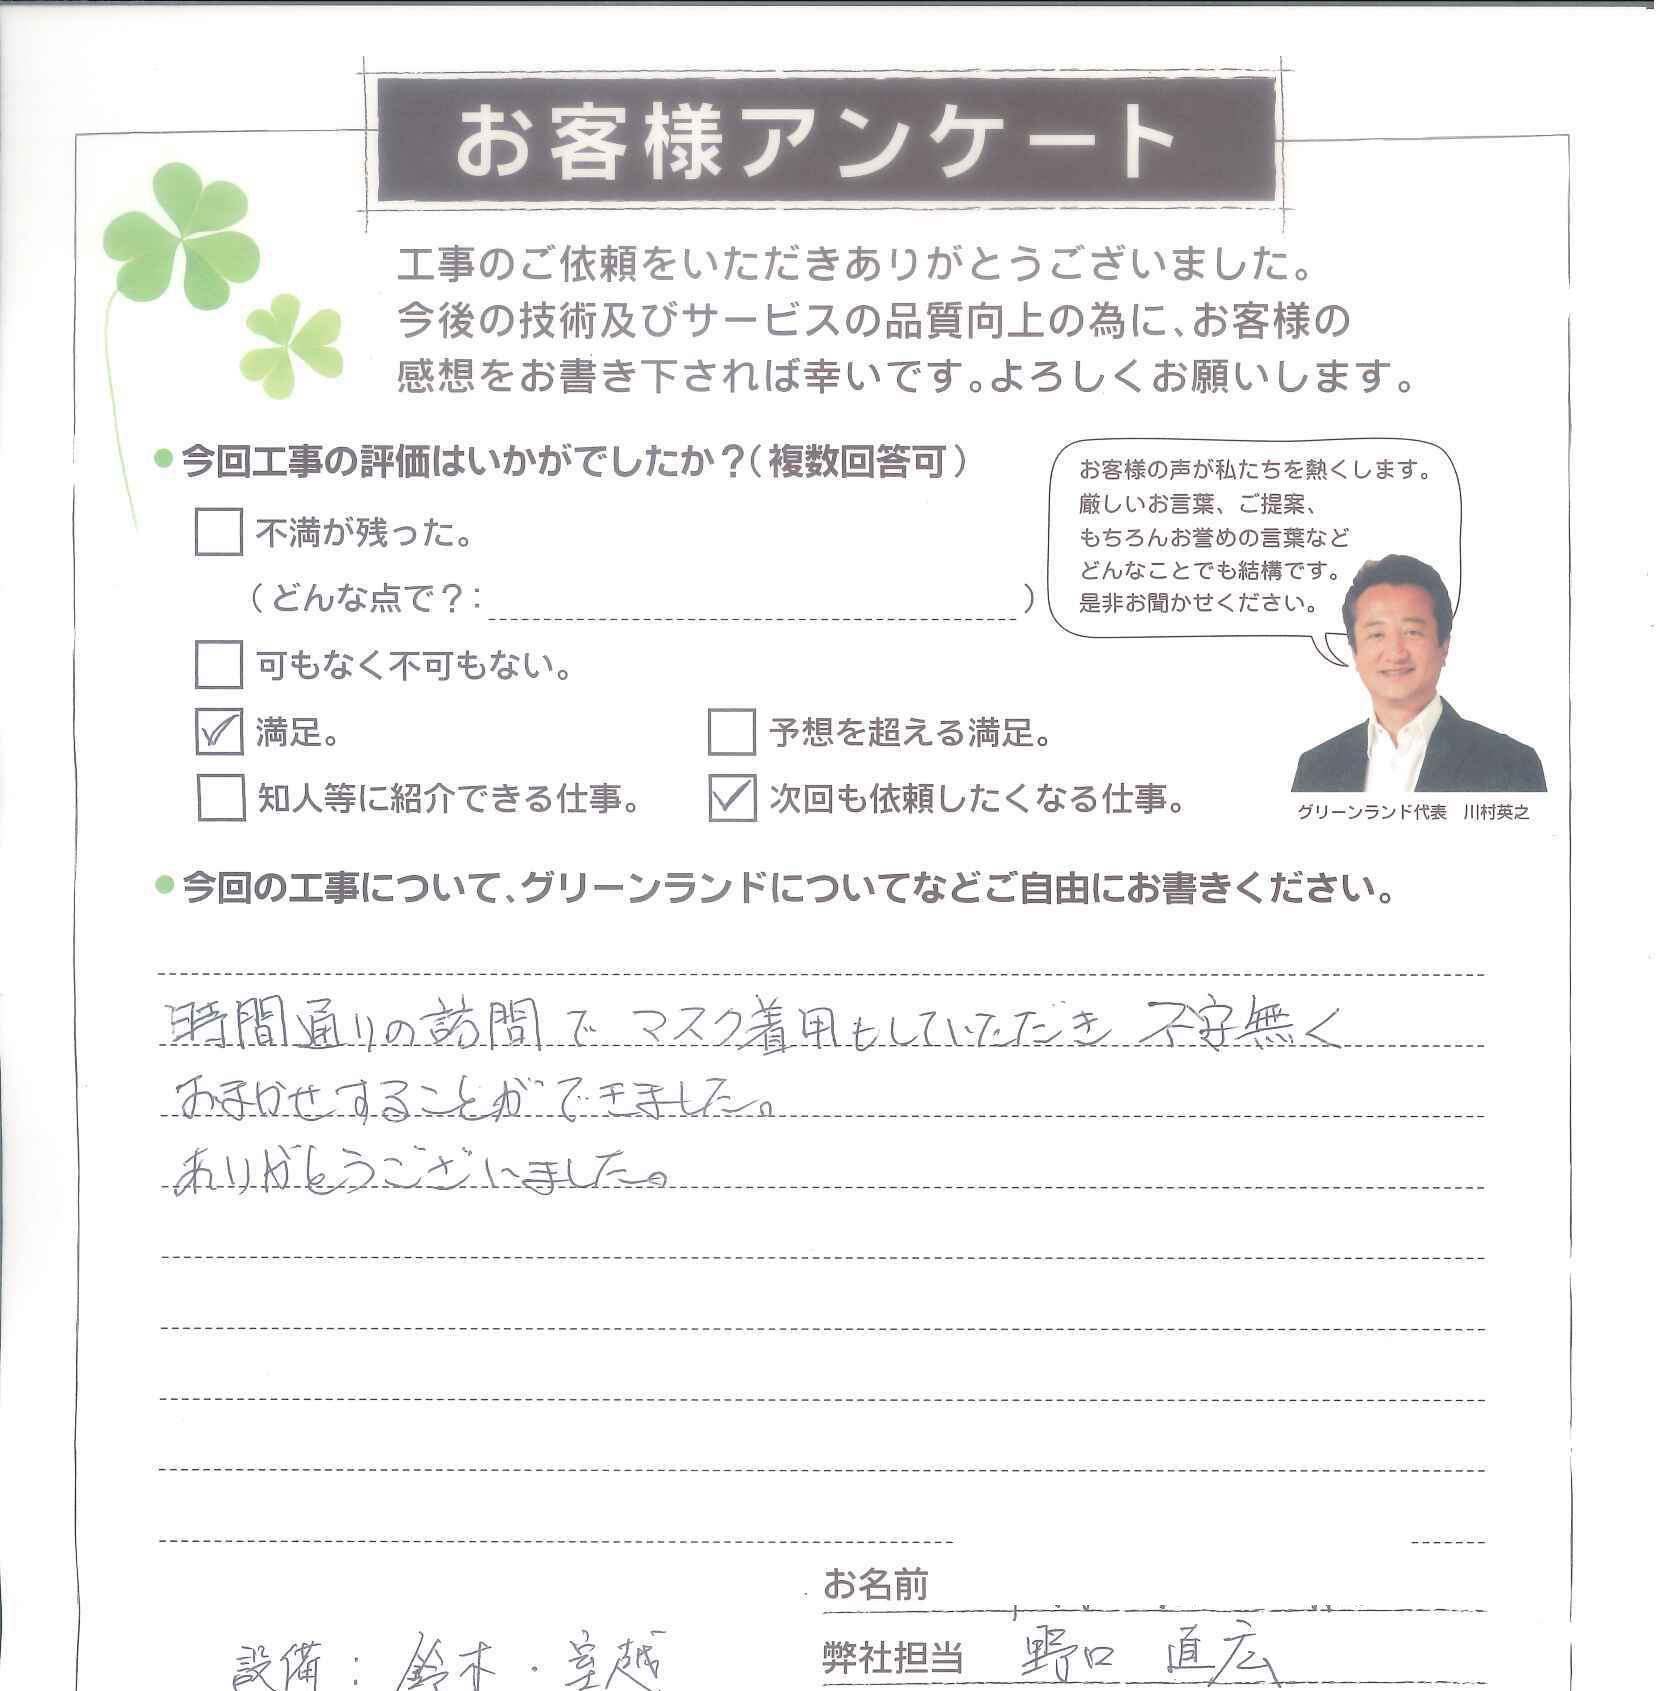 お客様アンケート
工事のご依頼をいただきありがとうございました。
今後の技術及びサービスの品質向上の為に、お客様の
感想をお書き下されば幸いです。よろしくお願いします。
●今回工事の評価はいかがでしたか？（複数回答可）
不満が残った。
（どんな点で？： ）
可もなく不可もない。
満足。
予想を超える満足。
知人等に紹介できる仕事。
次回も依頼したくなる仕事。
お客様の声が私たちを熱くします。
厳しいお言葉、ご提案、
もちろんお誉めの言葉など
どんなことでも結構です。
是非お聞かせください。
グリーンランド代表　川村英之
●今回の工事について、グリーンランドについてなどご自由にお書きください。
時間通りの訪問で マスク着用もしていただき 不安無く
おまかせすることができました。
ありがとうございました。
お名前
弊社担当 野口 直広
設備：鈴木・室越